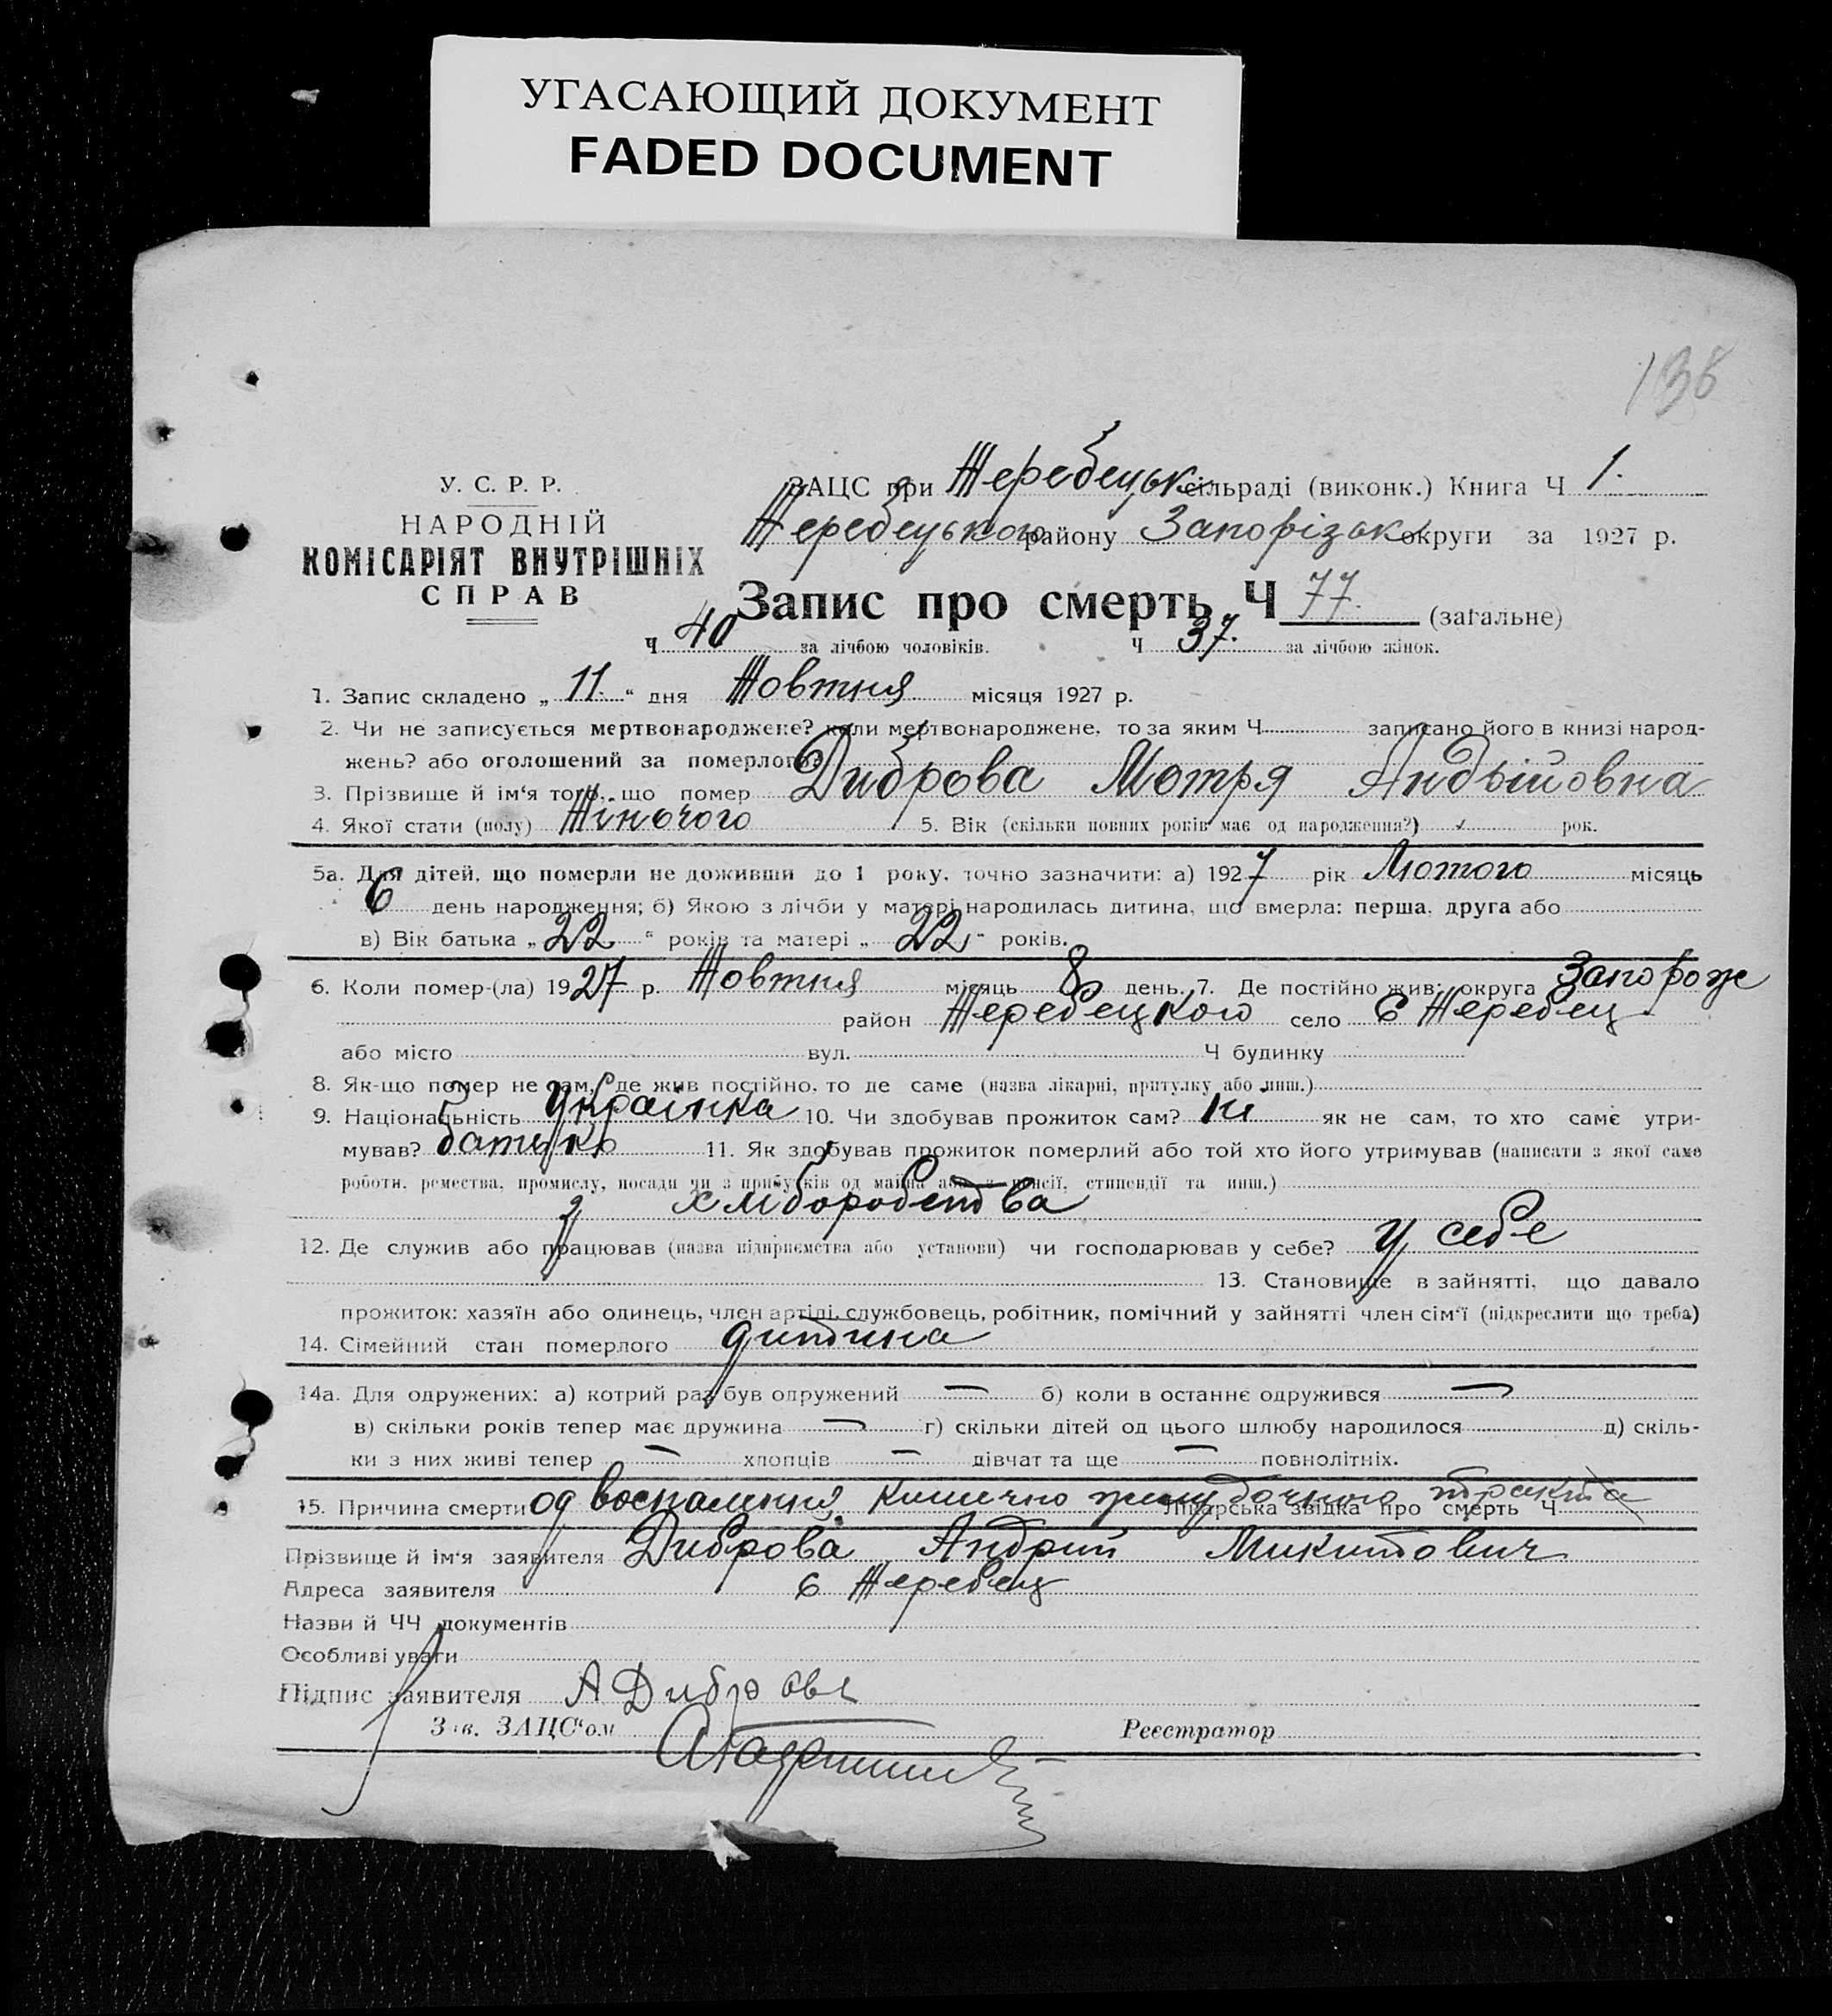 УГАСАЮЩИЙ ДОКУМЕНТ
FADED DOCUMENT
138
У. С. Р. Р.
НАРОДНІЙ
КОМІСАРІЯТ ВНУТРІШНІХ
СПРАВ
ЗАЦС при Жеребецьк сільраді (виконк.) Книга Ч 1.
Жеребецького району Запорізьк округи за 1927 р.
Запис про смерть Ч 77. (загальне)
Ч 40 за лічбою чоловіків. Ч 37. за лічбою жінок.
1. Запис складено „ 11. “ дня Жовтня місяця 1927 р.
2. Чи не записується мертвонароджене? коли мертвонароджене, то за яким Ч записано його в книзі народ-
жень? або оголошений за померлого?
3. Прізвище й ім‘я того, що помер Диброва Мотря Андрійовна
4. Якої стати (полу) Жіночого 5. Вік (скільки повних років має од народження?) рок.
5а. Для дітей, що померли не доживши до 1 року, точно зазначити: а) 1927 рік Лютого місяць
6 день народження; б) Якою з лічби у матері народилась дитина, що вмерла: перша, друга або
в) Вік батька „ 22 “ років та матері „ 22 “ років.
6. Коли помер-(ла) 1927 р. Жовтня місяць 8 день. 7. Де постійно жив: округа Запорож
район Жеребецкого село С Жеребец
або місто вул. Ч будинку
8. Як-що помер не там, де жив постійно, то де саме (назва лікарні, притулку або инш.)
9. Національність Українка 10. Чи здобував прожиток сам? ні як не сам, то хто саме утри-
мував? батько 11. Як здобував прожиток померлий або той хто його утримував (написати з якої саме
роботи, ремества, промислу, посади чи з прибутків од майна або з пенсії, стипендії та инш.)
з хліборобства
12. Де служив або працював (назва підприємства або установи) чи господарював у себе? у себе
13. Становище в зайнятті, що давало
прожиток: хазяїн або одинець, член артілі, службовець, робітник, помічний у зайнятті член сім‘ї (підкреслити що треба)
14. Сімейний стан померлого дитина
14а. Для одружених: а) котрий раз був одружений — б) коли в останнє одружився —
в) скільки років тепер має дружина — г) скільки дітей од цього шлюбу народилося д) скіль-
ки з них живі тепер — хлопців — дівчат та ще — повнолітніх.
15. Причина смерти од воспаления кишечно желудочного тракта Лікарська звідка про смерть Ч
Прізвище й ім‘я заявителя Диброва Андрий Микитович
Адреса заявителя с Жеребец
Назви й ЧЧ документів
Особливі уваги
Підпис заявителя А Диброва
Зав. ЗАЦС‘ом Реєстратор